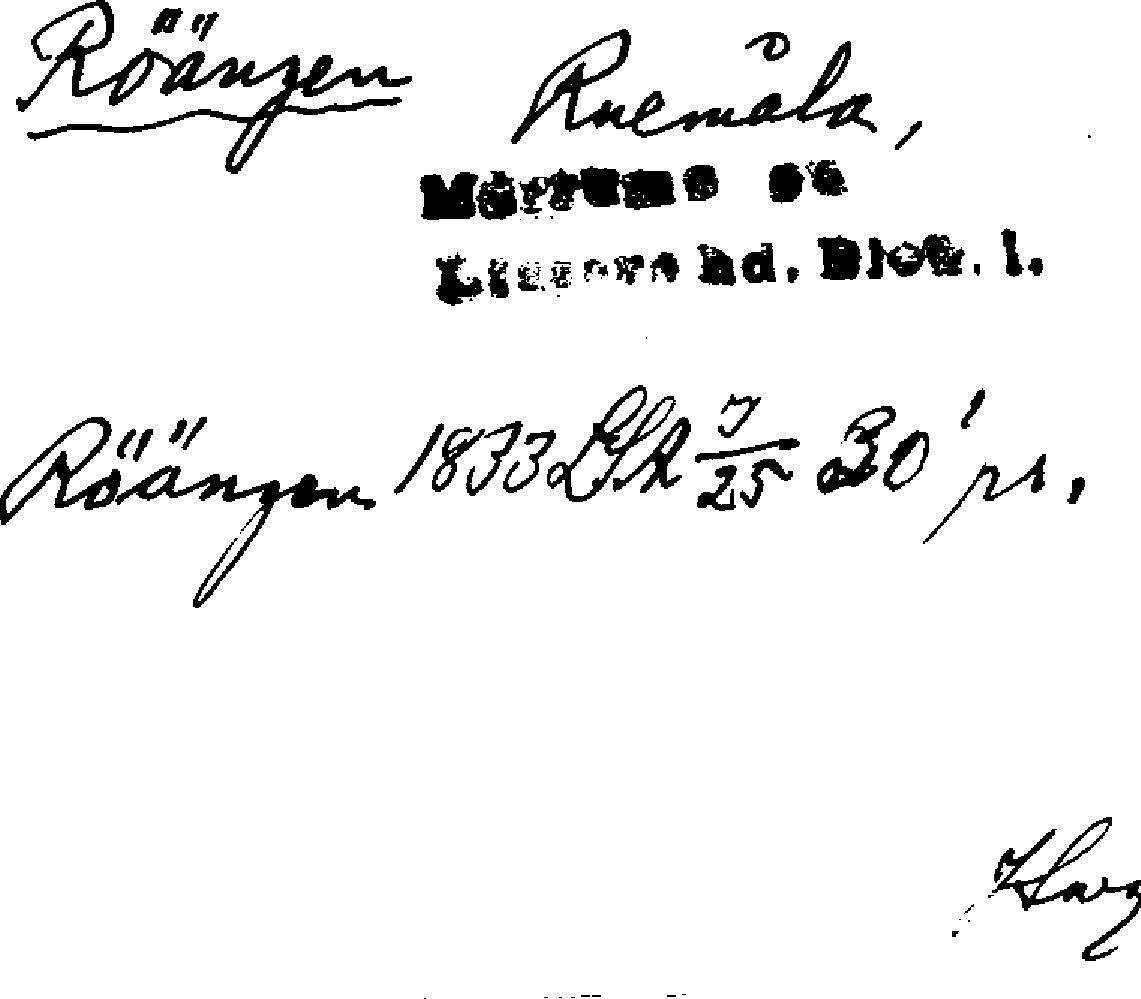 Röängen Ruemåla,
Mörrums sn
Listers hd. Blek. l.
Röängen 1833 LSA 7/25 30' pr.